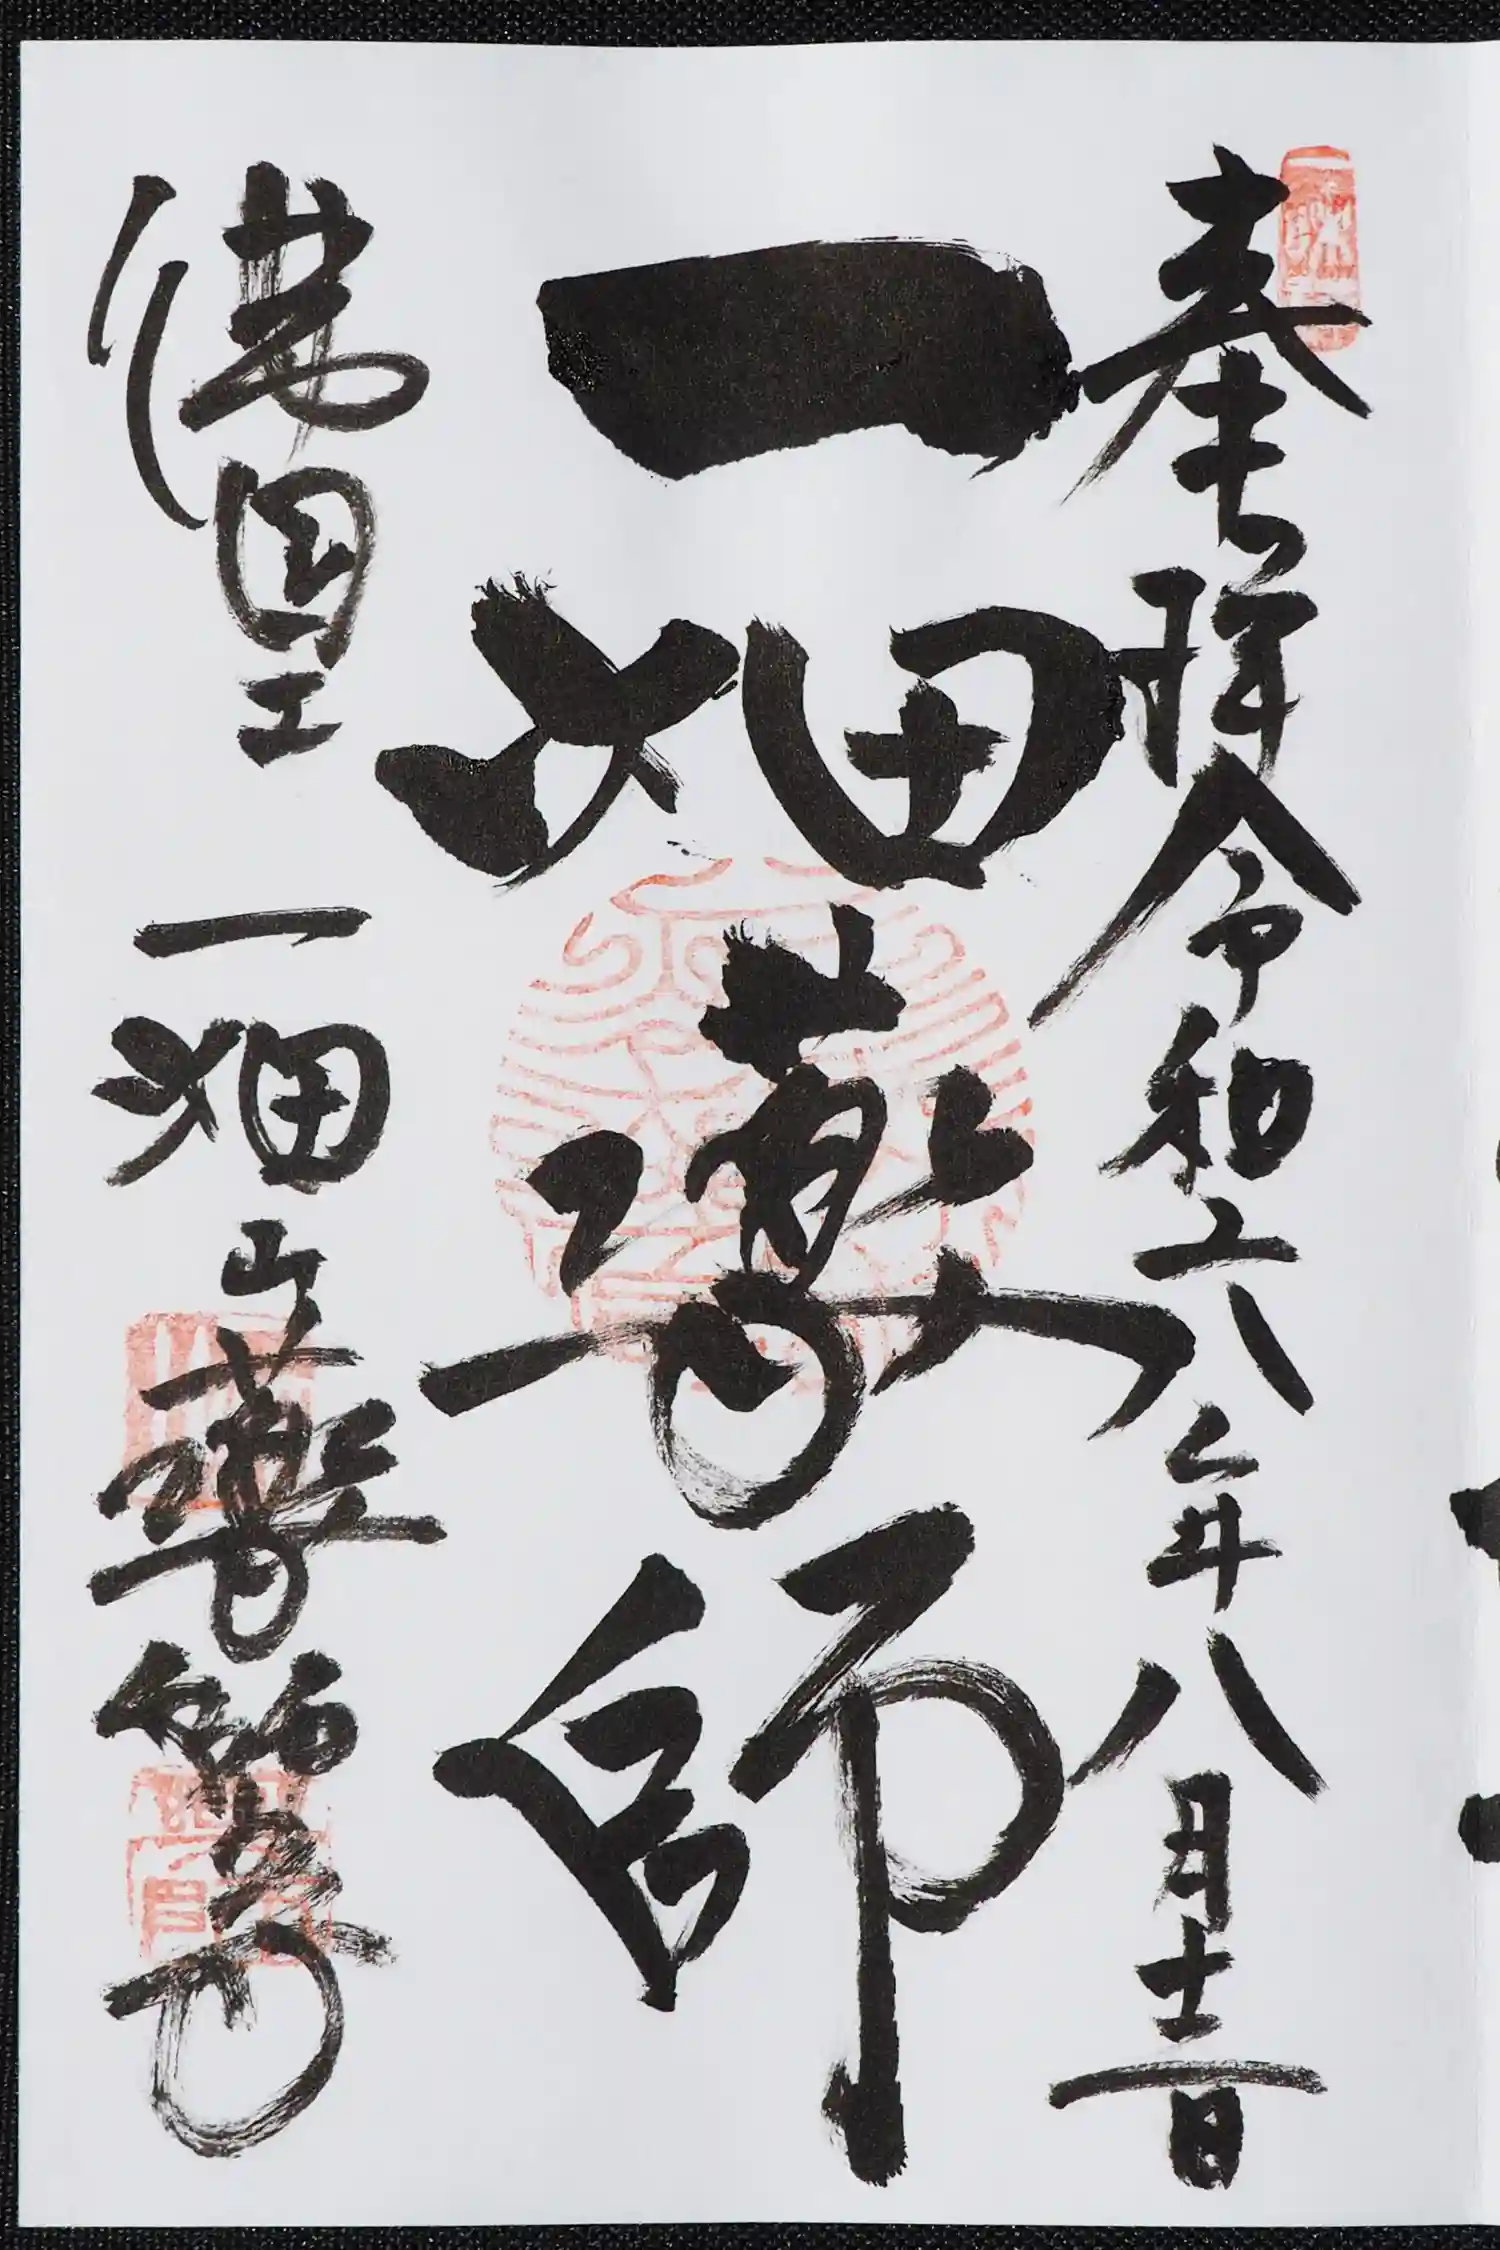 奉拝 令和六年八月十二日
一畑薬師
一畑山薬師寺